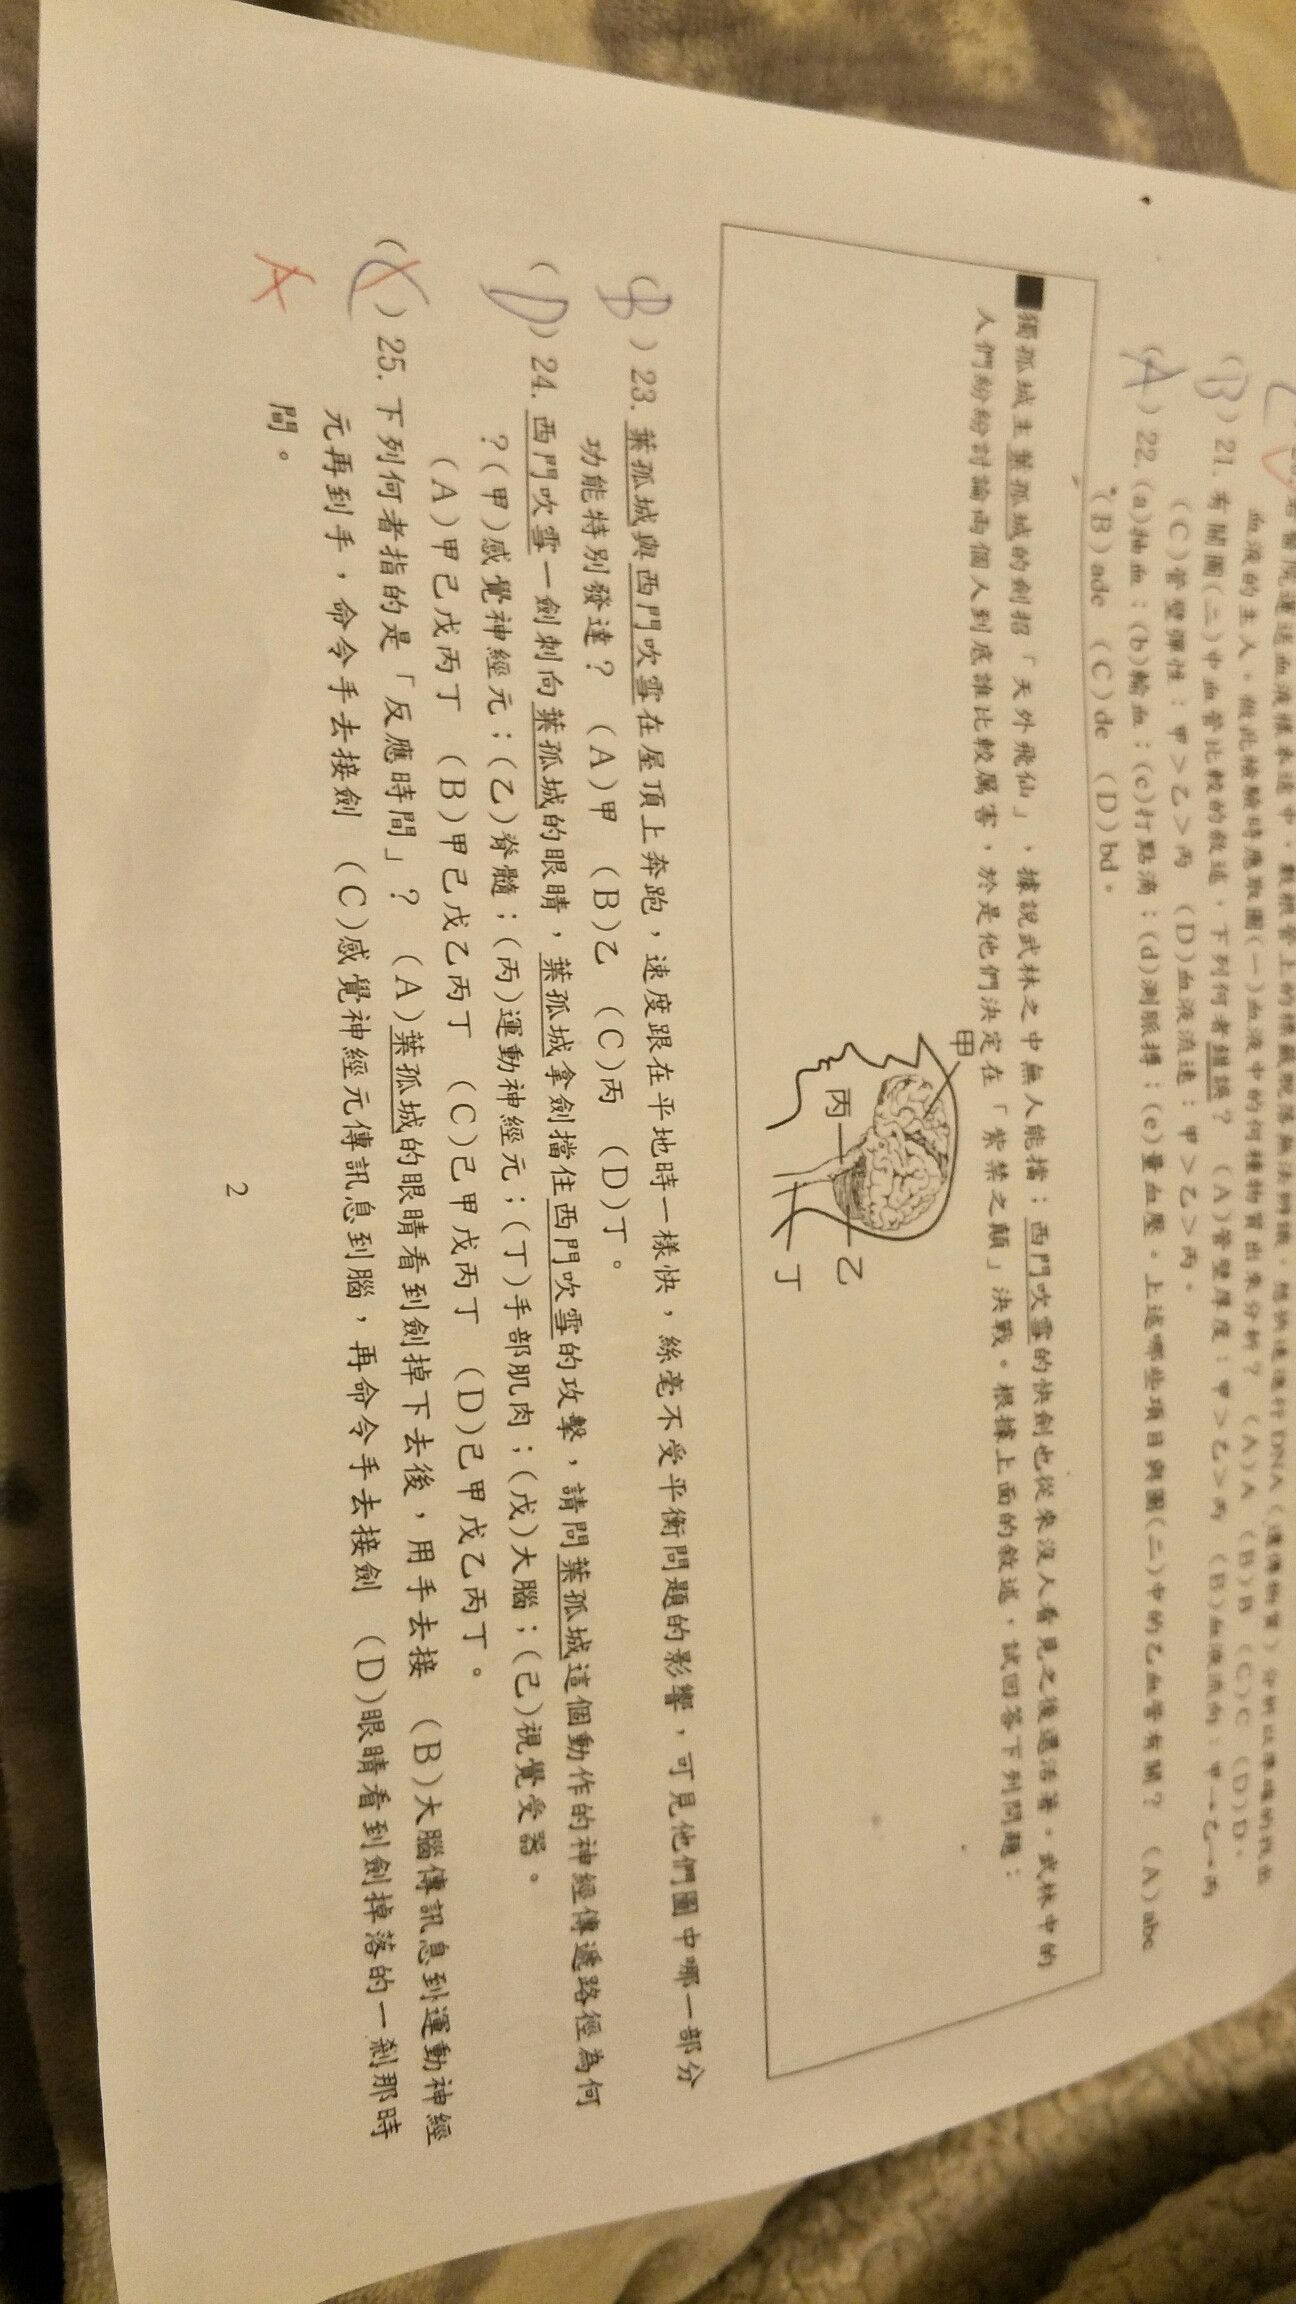 血液的主人。做此檢驗時應取圖(一)血液中的何種物質出來分析？ (A)A (B)B (C)C (D)D。
(B)21. 有關圖(二)中血管比較的敘述，下列何者錯誤？ (A)管壁厚度：甲＞乙＞丙 (B)血液流向：甲→乙→丙
(C)管壁彈性：甲＞乙＞丙 (D)血液流速：甲＞乙＞丙。
(A)22. (a)抽血；(b)輸血；(c)打點滴；(d)測脈搏；(e)量血壓。上述哪些項目與圖(二)中的乙血管有關？ (A)abc
(B)ade (C)de (D)bd。
■獨孤城主葉孤城的劍招「天外飛仙」，據說武林之中無人能擋；西門吹雪的快劍也從來沒人看見之後還活著。武林中的
人們紛紛討論兩個人到底誰比較厲害，於是他們決定在「紫禁之顛」決戰。根據上面的敘述，試回答下列問題：
甲
丙
乙
丁
(B)23. 葉孤城與西門吹雪在屋頂上奔跑，速度跟在平地時一樣快，絲毫不受平衡問題的影響，可見他們圖中哪一部分
功能特別發達？ (A)甲 (B)乙 (C)丙 (D)丁。
(D)24. 西門吹雪一劍刺向葉孤城的眼睛，葉孤城拿劍擋住西門吹雪的攻擊，請問葉孤城這個動作的神經傳遞路徑為何
？(甲)感覺神經元；(乙)脊髓；(丙)運動神經元；(丁)手部肌肉；(戊)大腦；(己)視覺受器。
(A)甲己戊丙丁 (B)甲己戊乙丙丁 (C)己甲戊丙丁 (D)己甲戊乙丙丁。
( )25. 下列何者指的是「反應時間」？ (A)葉孤城的眼睛看到劍掉下去後，用手去接 (B)大腦傳訊息到運動神經
元再到手，命令手去接劍 (C)感覺神經元傳訊息到腦，再命令手去接劍 (D)眼睛看到劍掉落的一剎那時
間。
A
2